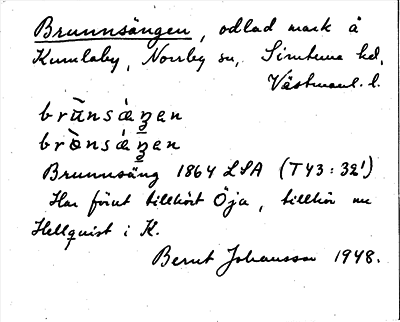 Brunnsängen, odlad mark å
Kumlaby, Norrby sn, Simtuna hd,
Västmanl. l.
Brunnsäng 1864 LSA (T43:32¹)
Har förut tillhört Öja, tillhör nu
Hellquist i K.
Bernt Johansson 1948.